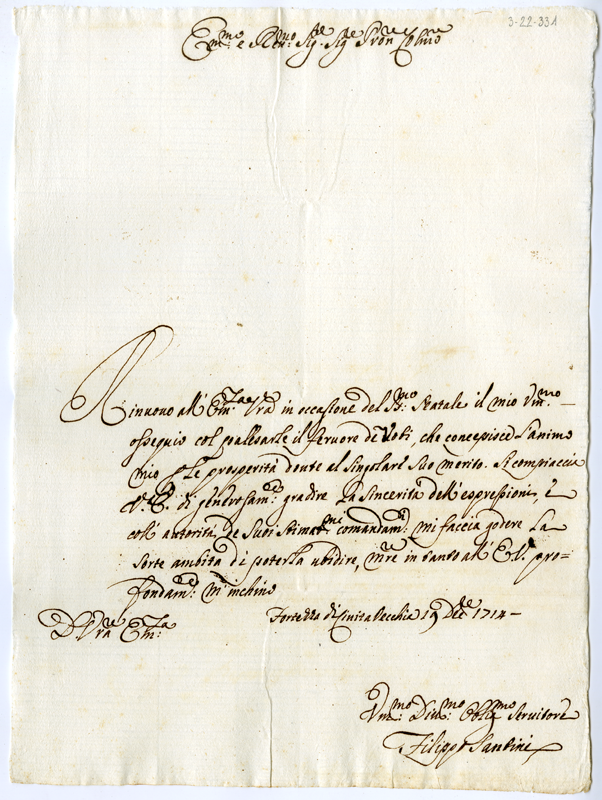 3-22-331
Em:mo e Rev:mo Sig.re Sig.re Pron Colmo
Rinuovo all' Em:za Vra in occasione del SS:mo Natale il mio Vm:mo
ossequio col palesarle il fervore de Voti, che concepisce l'animo
mio p le prosperità doute al singolare suo merito. Si compiaccia
V.E. di generosam:te gradire la sincerità dell' espressioni, è
coll' autorità de suoi stimat:mi comandam:ti mi faccia godere la
sorte ambita di poterla ubidire, mre in tanto all' E.V. pro=
fondam:te m'inchino
D. Vra Em:za
Fortezza di Civita Vecchia 19 Dbre 1714
Vm:mo Div:mo Oblig:mo Servitore
Filippo Santini